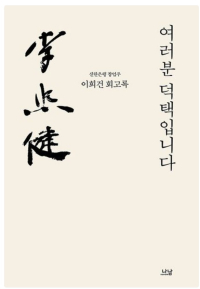 여러분 덕택입니다
李熙健
신한은행 창업주
이희건 회고록
나남